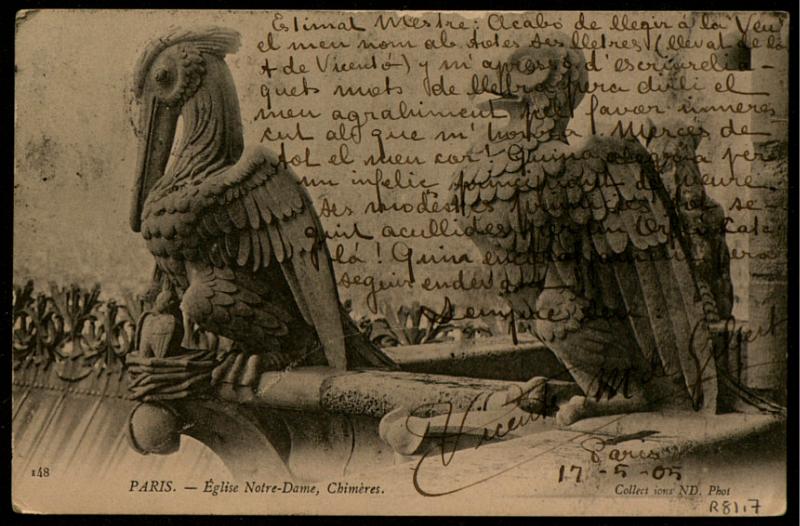 Estimat Mestre: Acabo de llegir á la Veu
el meu nom ab totes ses lletres (llevat de la
t de Vicentó) y m'apresso d'escriureli a-
quets mots de lletra pera dirli el
meu agrahiment pel favor inmeres-
cut ab que m'honra. Mercés de
tot el meu cor! Quina alegría pera
un infeliç principiant de veure
ses modestes primicies tot se-
guit acullides per un Orfeó Catá-
lá! Quin encoratjament pera
seguir endevant!
Sempre seu:
Vicentó Mª de Gibert
París
17-5-05
148
PARIS. — Église Notre-Dame, Chimères.
Collections ND. Phot
R81,7